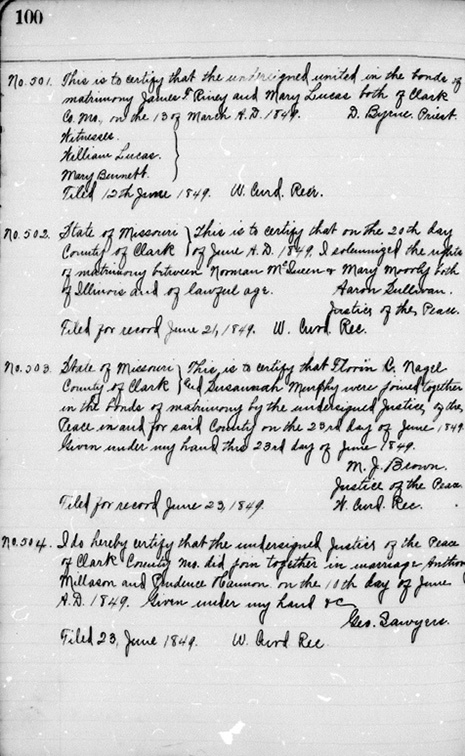 100
No. 301. This is to certify that the undersigned united in the bonds of
matrimony James F Riney and Mary Lucas both of Clark
Co. Mo., on the 13 of March A.D. 1849. D. Byrne. Priest.
Witnesses.
William Lucas.
Mary Bennett.
Filed 12th June 1849. W. Curd. Recr.
No. 302. State of Missouri } This is to certify that on the 20th day
County of Clark } of June A.D. 1849, I solemnized the rights
of matrimony between Norman McQueen & Mary both
of Illinois and of lawful age. Aaron Sullivan.
Justice of the Peace.
Filed for record June 21, 1849. W. Curd Rec.
No. 303. State of Missouri } This is to certify that Florin C. Nagel
County of Clark } and Susannah Murphy were joined together
in the bonds of matrimony by the undersigned Justice of the
Peace in and for said County on the 23rd day of June 1849.
Given under my hand this 23rd day of June 1849.
M. J. Brown.
Justice of the Peace.
Filed for record June 23, 1849. W. Curd Rec.
No. 304. I do hereby certify that the undersigned Justice of the Peace
of Clark County Mo. did join together in marriage
Millason and Prudence on the 10th day of June
A.D. 1849. Given under my hand &c
Geo. Sawyers.
Filed 23, June 1849. W. Curd Rec.